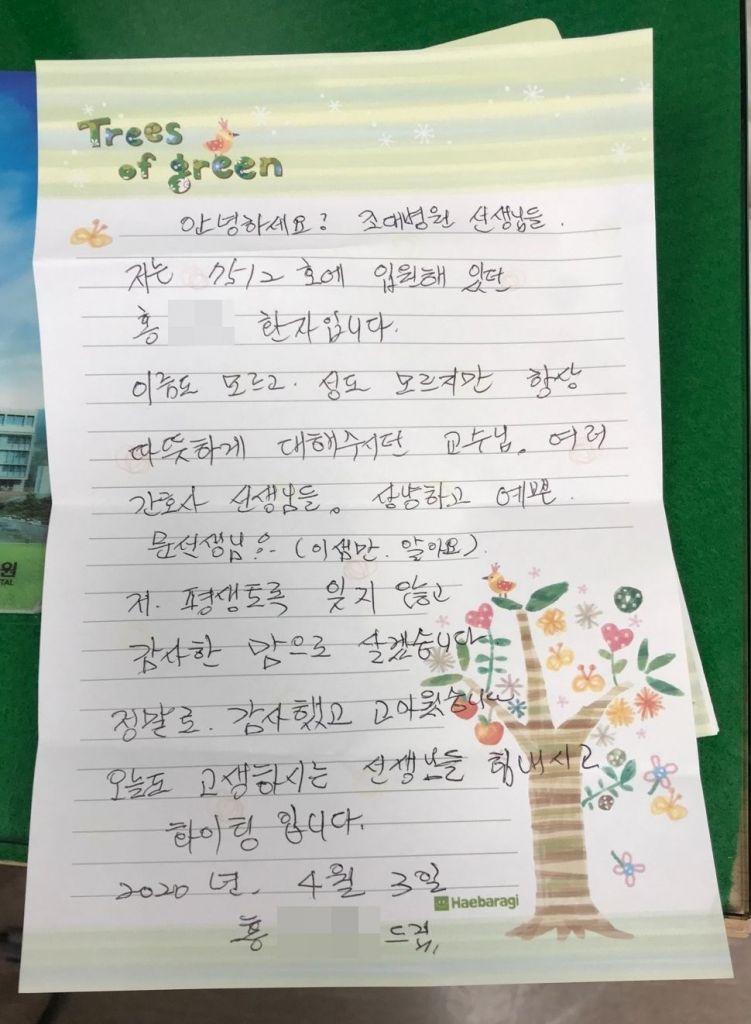 Trees
of green
안녕하세요? 조대병원 선생님들.
저는 7512호에 입원해 있던
홍 환자입니다.
이름도 모르고. 성도 모르지만 항상
따뜻하게 대해주시던 교수님. 여러
간호사 선생님들. 상냥하고 예쁜.
문선생님은 (이 성만. 알아요).
저. 평생토록 잊지 않고
감사한 맘으로 살겠습니다
정말로. 감사했고 고마웠습니다
오늘도 고생하시는 선생님들 힘내시고
화이팅 입니다.
2020년. 4월 3일
Haebaragi
홍 드림.
원
TAL